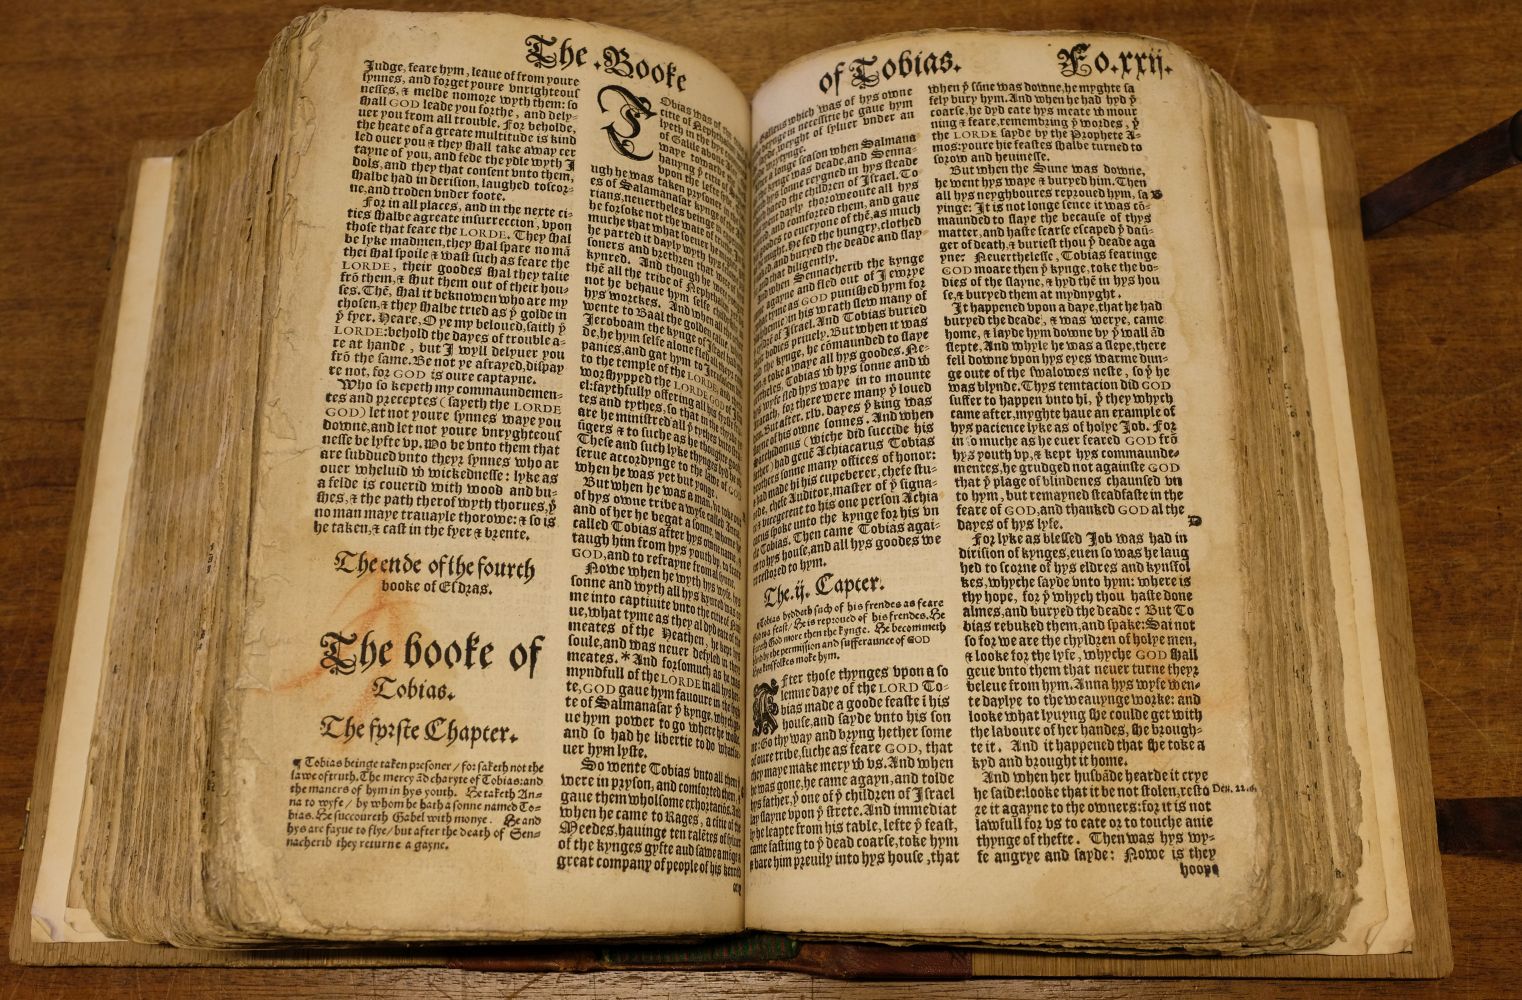 The .Booke
Judge, feare hym, leaue of from youre
synnes, and forget youre vnrighteous
nesses, & melde nomore wyth them: so
shall GOD leade you forthe, and dely-
uer you from all trouble. For beholde,
the heate of a greate multitude is kind
led ouer you & they shall take away cer
tayne of you, and fede the ydle wyth J
dols, and they that consent vnto them,
shalbe had in derision, laughed toscor-
ne, and troden vnder foote.
For in all places, and in the nexte ci-
ties shalbe agreate insurreccion, vpon
those that feare the LORDE. They shal
be lyke madmen, they shal spare no mã
thei shal spoile & wast such as feare the
LORDE, their goodes shal they take
frõ them, & shut them out of their hou-
ses. Thẽ, shal it beknowen who are my
chosen, & they shalbe tried as ẏ golde in
ẏ fyer. Heare, O ye my beloued, saith ẏ
LORDE: behold the dayes of trouble a-
re at hande, but J wyll delyuer you
frõ the same. Be not ye afrayed, dispay
re not, for GOD is oure captayne.
Who so kepeth my commaundemen-
tes and preceptes (sayeth the LORDE
GOD) let not youre synnes waye you
downe, and let not youre vnryghteous
nesse be lyfte vp. Wo be vnto them that
are subdued vnto theyr synnes who ar
ouer wheluid w̃ wickednesse: lyke as
a felde is couerid with wood and bu-
shes, & the path therof wyth thornes, ẏ
no man maye trauayle thorowe: & so is
he taken, & cast in the fyer & brente.
The ende of the fourth
booke of Esdras.
The booke of
Tobias.
The fyrste Chapter.
¶ Tobias beinge taken presoner / forsaketh not the
lawe of truth. The mercy ãd charyte of Tobias: and
the maners of hym in hys youth. He taketh An-
na to wyfe / by whom he hath a sonne named To-
bias. He succoureth Gabel with monye. He and
hys are fayne to flye / but after the death of Sen-
nacherib they returne a gayne.
TObias was of the
citie of Nephthali
lyeth in the hye
of Galile aboue
waye towarde
hauyng ẏ citie of
vpon the lefte
ugh he was taken prysoner
es of Salamanasar kynge of
rians, neuertheles beinge in
he forsoke not the waie of
much that what soeuer he
he parted it dayly wyth hys
soners and brethren that were of
kynred. And though he were
thẽ all the tribe of Nephthali
not he behaue hym selfe
hys worckes. And when all
wente to Baal the golden
Jeroboam the kynge of Israel
de, he hym selfe alone fled
panies, and gat hym to Jerusalem
to the temple of the LORDE, and
worshypped the LORDE GOD of
el: faythfully offering all his
tes and tythes, so that in the
are he ministred all ẏ tythes
ũgers & to suche as he thought good
These and such lyke thynges
serue accordynge to the lawe of GOD
when he was yet but yonge.
But when he was a man, he toke
of hys owne tribe a wyfe called Anna
and of her he begat a sonne whome he
called Tobias after hys owne name
taugh him from hys youth vp, to feare
GOD, and to refrayne from al synne.
Nowe when he wyth hys wyfe, hys
sonne and wyth all hys kynred was
me into captiuite vnto the citie of
ue, what tyme as they al dyd eate of the
meates of the Heathen, he kept hys
soule, and was neuer defyled in their
meates. * And forsomuch as he was
myndfull of the LORDE in all hys
te, GOD gaue hym fauoure in the
te of Salmanasar ẏ kynge, which
ue hym power to go where he wolde
and so had he libertie to do what
uer hym lyste.
So wente Tobias vnto all them
were in pryson, and comforted them, &
gaue them wholsome exhortaciõs. And
when he came to Rages, a citie of the
Meedes, hauinge ten talẽtes of syluer
of the kynges gyfte and sawe amõge
great company of people of his kenred
of Tobias. Fo.xxij.
Gabelus which was of hys owne
beynge in necessitie he gaue hym
weyght of syluer vnder an
hande wrytynge.
a longe season when Salmana
kynge was deade, and Senna-
hys sonne reygned in hys steade
hated the children of Israel. To
went dayly thoroweoute all hys
kynred and comforted them, and gaue
goodes to euery one of thẽ, as much
as he might. He fed the hungry, clothed
naked and buryed the deade and slay
and that diligently.
And when Sennacherib the kynge
agayne and fled out of Jewrye
tyme as GOD punished hym for
blasphemie in his wrath slew many of
children of Israel. And Tobias buried
their bodies priuely. But when it was
told the kynge, he cõmaunded to slaye
him & toke a waye all hys goodes. Ne-
uertheles, Tobias w̃ hys sonne and w̃
hys wyfe fled hys waye in to mounte
for there were many ẏ loued
him. But after. xlv. dayes ẏ kyng was
slayne of his owne sonnes. And when
Sarchidonus (wiche did succide his
father) had geuẽ Achiacarus Tobias
brothers sonne many offices of honor:
& had made hi his cupeberer, chefe stu-
arde, chefe Auditor, master of ẏ signa-
& vicegerent to his one person Achia
carus spoke unto the kynge for his vn
cle Tobias. Then came Tobias agai-
ne to hys house, and all hys goodes we
re restored to hym.
The .ij. Capter.
¶ Tobias byddeth such of his frendes as feare
God to a feast / He is reproued of his frendes. He
feareth God more then the kynge. He becommeth
blynd by the permission and sufferaunce of GOD
Hys kynsfolkes moke hym.
AFter those thynges vpon a so
lemne daye of the LORD To-
bias made a goode feaste i his
house, and sayde vnto his son
ne: Go thy way and bryng hether some
of oure tribe, suche as feare GOD, that
they maye make mery w̃ vs. And when
he was gone, he came agayn, and tolde
hys father, ẏ one of ẏ children of Israel
lay slayne vpon ẏ strete. And immediat
ly he leapte from his table, lefte ẏ feast,
came fasting to ẏ dead coarse, toke hym
& bare him preuily into hys house, that
when ẏ sũne was downe, he myghte sa
fely bury hym. And when he had hyd ẏ
coarse, he dyd eate hys meate w̃ mour
ning & feare, remembring ẏ wordes, ẏ
the LORDE sayde by the Prophete A-
mos: youre hie feastes shalbe turned to
sorow and heuinesse.
But when the Sune was downe,
he went hys waye & buryed him. Then
all hys neyghboures reproued hym, sa B
yinge: It is not longe sence it was cõ-
maunded to slaye the because of thys
matter, and haste scarse escaped ẏ daũ-
ger of death, & buriest thou ẏ deade aga
yne? Neuerthelesse, Tobias fearinge
GOD moare then ẏ kynge, toke the bo-
dies of the slayne, & hyd thẽ in hys hou
se, & buryed them at mydnyght.
It happened vpon a daye, that he had
buryed the deade, & was werye, came
home, & layde hym downe by ẏ wall ãd
slepte, And whyle he was a slepe, there
fell downe vpon hys eyes warme dun-
ge oute of the swalowes neste, so ẏ he
was blynde. Thys temtacion did GOD
suffer to happen vnto hi, ẏ they whych
came after, myghte haue an example of
hys pacience lyke as of holye Job. For
in somuche as he euer feared GOD frõ
hys youth vp, & kept hys commaunde-
mentes, he grudged not againste GOD
that ẏ plage of blindenes chaunsed vn
to hym, but remayned steadfaste in the
feare of GOD, and thanked GOD al the
dayes of hys lyfe. D
For lyke as blessed Job was had in
dirision of kynges, euen so was he laug
hed to scorne of hys eldres and kynssol
kes, whyche sayde vnto hym: where is
thy hope, for ẏ whych thou haste done
almes, and buryed the deade: But To
bias rebuked them, and spake: Sai not
so for we are the chyldren of holye men,
& looke for the lyfe, whyche GOD shall
geue vnto them that neuer turne theyr
beleue from hym. Anna hys wyfe wen-
te daylye to the weauynge worke: and
looke what lyuyng she coulde get with
the laboure of her handes, she brough-
te it. And it happened that she toke a
kyd and brought it home.
And when her husbãde hearde it crye
he saide: looke that it be not stolen, resto Deu. 22.a
re it agayne to the owners: for it is not
lawfull for vs to eate or to touche anie
thynge of thefte. Then was hys wy-
fe angrye and sayde: Nowe is they
hoope